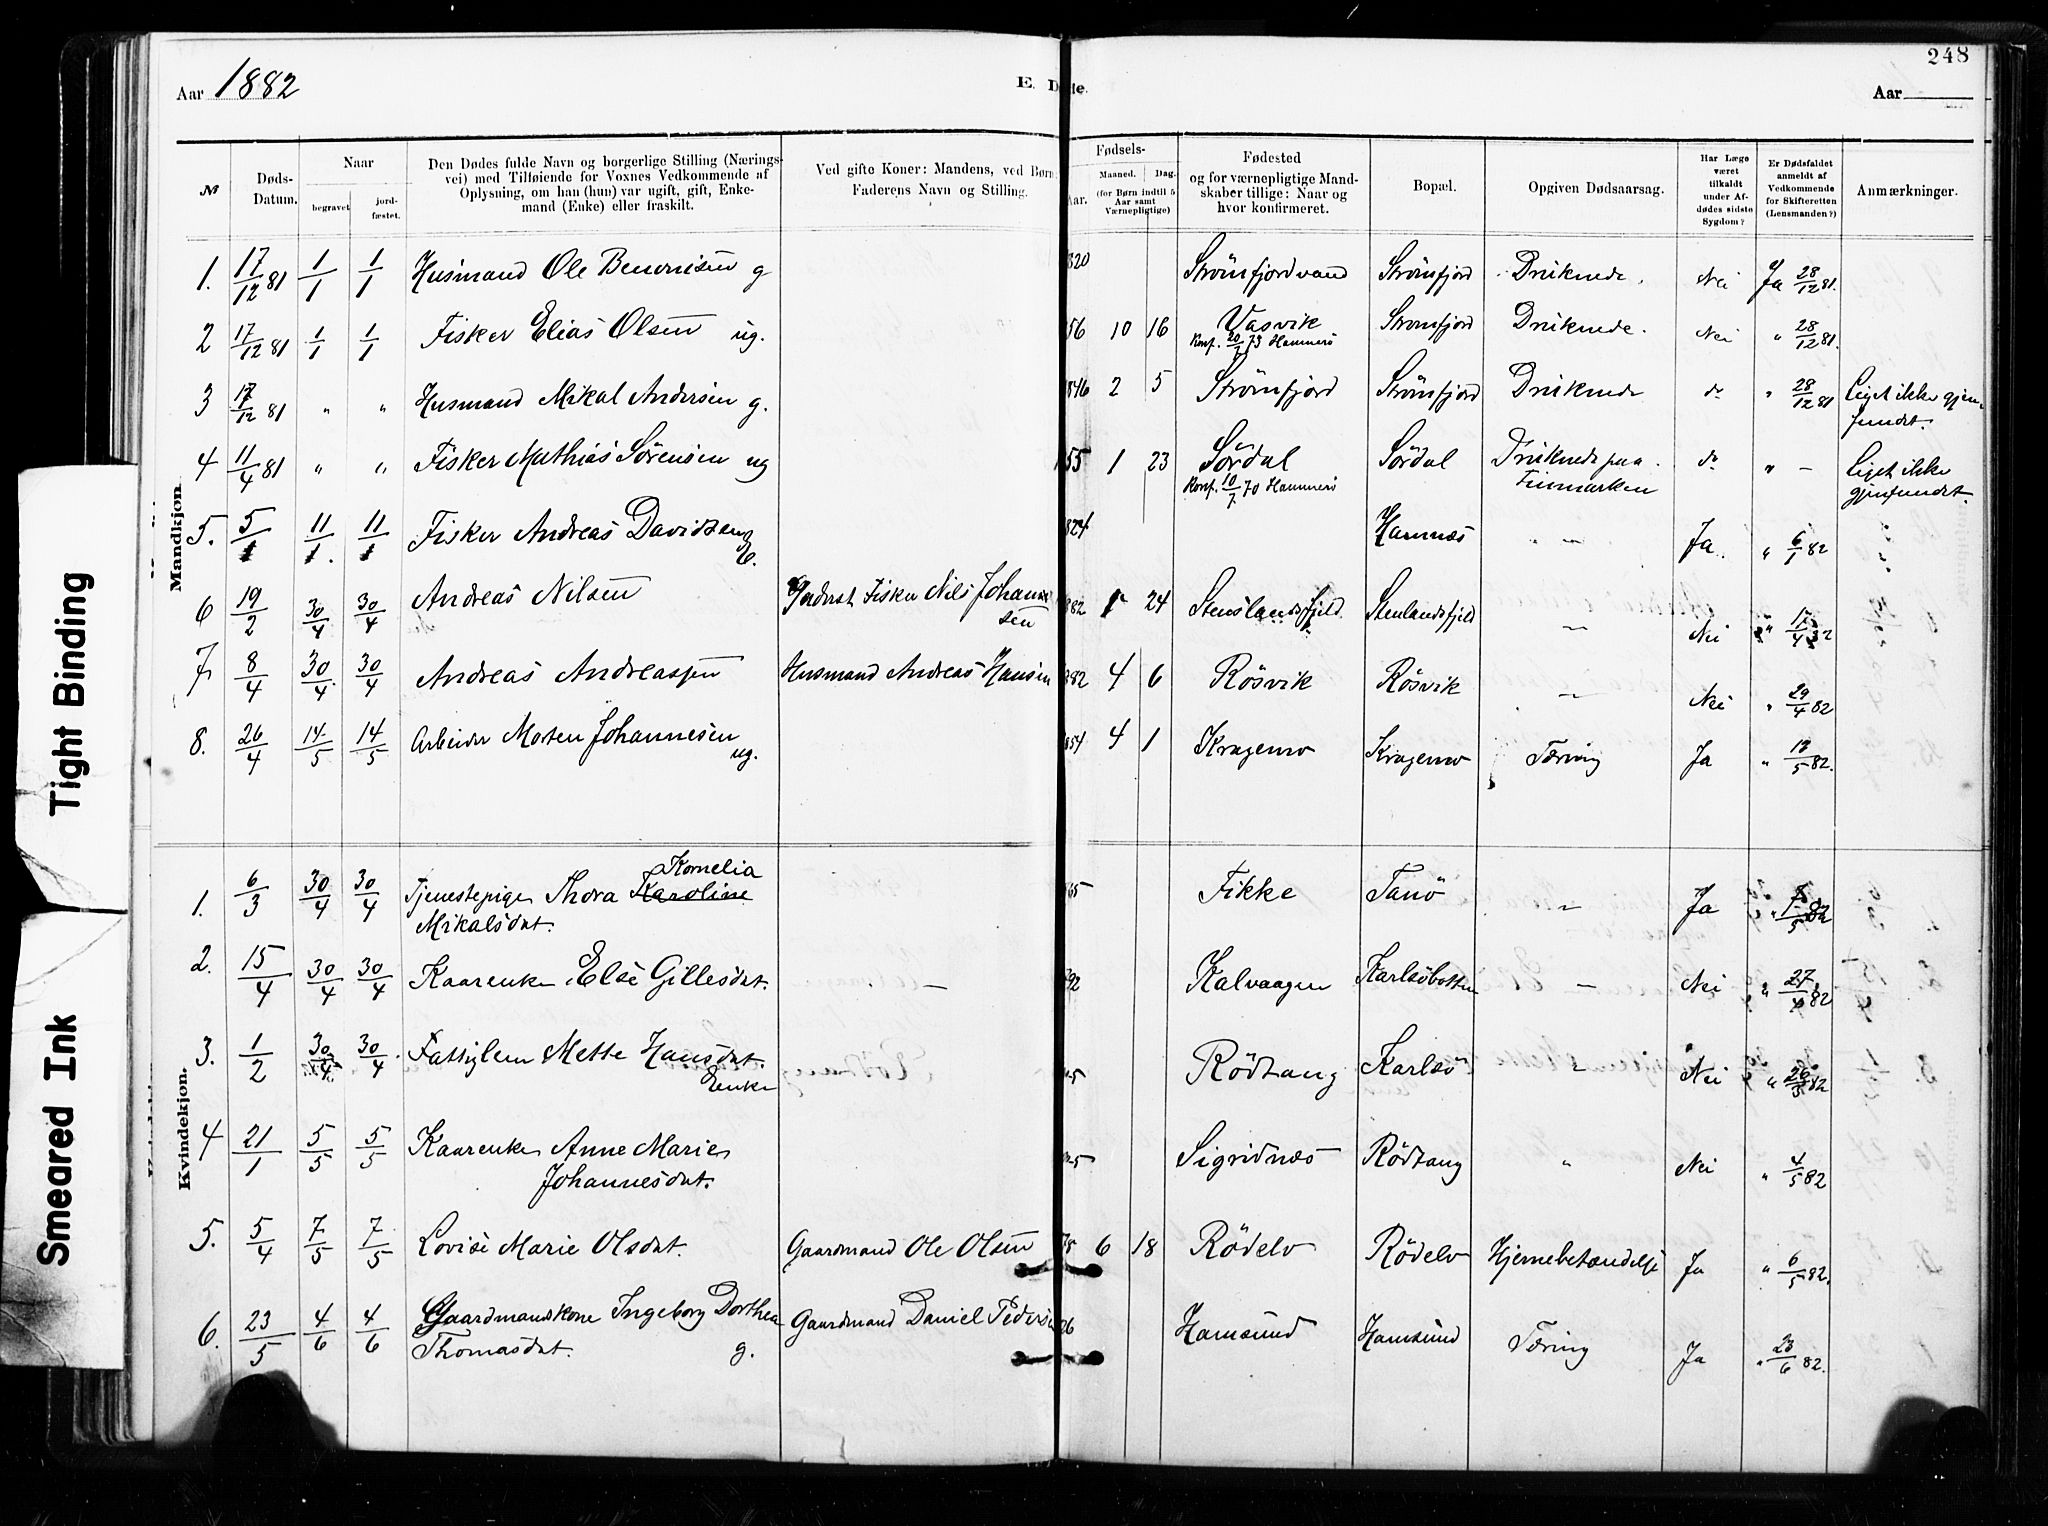 248
Aar 1882
E. Døde.
Aar
№
Døds-Datum.
Naar
begravet
jordfæstet.
Den Dødes fulde Navn og borgerlige Stilling (Nærings-
vei) med Tilføiende for Voxnes Vedkommende af
Oplysning, om han (hun) var ugift, gift, Enke-
mand (Enke) eller fraskilt.
Ved gifte Koner: Mandens, ved Børn
Faderens Navn og Stilling.
Fødsels-
Aar.
Maaned. Dag.
(for Børn indtil 5
Aar samt
Værnepligtige)
Fødested
og for værnepligtige Mand-
skaber tillige: Naar og
hvor konfirmeret.
Bopæl.
Opgiven Dødsaarsag.
Har Læge
været
tilkaldt
under Af-
dødes sidste
Sygdom?
Er Dødsfaldet
anmeldt af
Vedkommende
for Skifteretten
(Lensmanden?)
Anmærkninger.
Mandkjøn.
1. 17/12 81 1/1 1/1 Husmand Ole Benonisen g 820 Strömfjordvand Strömfjord Druknede. Nei Ja 28/12 81.
2 17/12 81 1/1 1/1 Fisker Elias Olsen ug. 56 10 16 Vasvik Strömfjord Druknede. Nei " 28/12 81.
Konf. 20/7 73 Hammerö
3 17/12 81 " " Husmand Mikal Andersen g. 1846 2 5 Strömfjord Strömfjord Druknede do " 28/12 81 Liget ikke gjen-
fundet.
4 11/4 81 " " Fisker Mathias Sörensen ug 55 1 23 Sördal Sördal Druknede paa do " – Liget ikke
Konf. 10/7 70 Hammerö Finmarken gjenfundet.
5. 5/1 11/1. 11/1 Fisker Andreas Davidsen 824 Hamnæs " – Ja. " 6/1 82
6 19/2 30/4 30/4 Andreas Nilsen Inderst Fisker Nils Johanne
sen 882 1 24 Stenslandsfjeld Stenlandsfjeld – Nei " 17/4 82
7 8/4 30/4 30/4 Andreas Andreassen Husmand Andreas Hansen 882 4 6 Rösvik Rösvik – Nei " 29/4 82
8. 26/4 14/5 14/5 Arbeider Morten Johannesen 854 4 1 Kragemo Kragemo Tæring Ja " 13/5 82.
ug.
Kvindekjøn.
1. 6/3 30/4 30/4 Tjenestepige Thora Karoline Kornelia 65 Fikke Tanö – Ja " 1/5 82
Mikalsdat.
2. 15/4 30/4 30/4 Kaarenke Else Gillesdat. – 92 Kalvaagen Karlsöbotten – Nei " 27/4 82
3. 1/2 30/4 30/4 Fattiglem Mette Hansdat. 5 Rödtang Karlsö " Nei " 26/5 82
Enke
4 21/1 5/5 5/5 Kaarenke Anne Marie 5 Sigridnæs Rödtang " Nei " 4/5 82
Johannesdat.
5. 5/4 7/5 7/5 Lovise Marie Olsdat. Gaardmand Ole Olsen 78 6 18 Rödelv Rödelv Hjernebetændelse Ja " 6/5 82.
6. 23/5 4/6 4/6 Gaardmandskone Ingeborg Dorthea Gaardmand Daniel Pedersen 26 Hamsund Hamsund Tæring Ja " 23/6 82.
Thomasdat. g.
Tight Binding
Smeared Ink